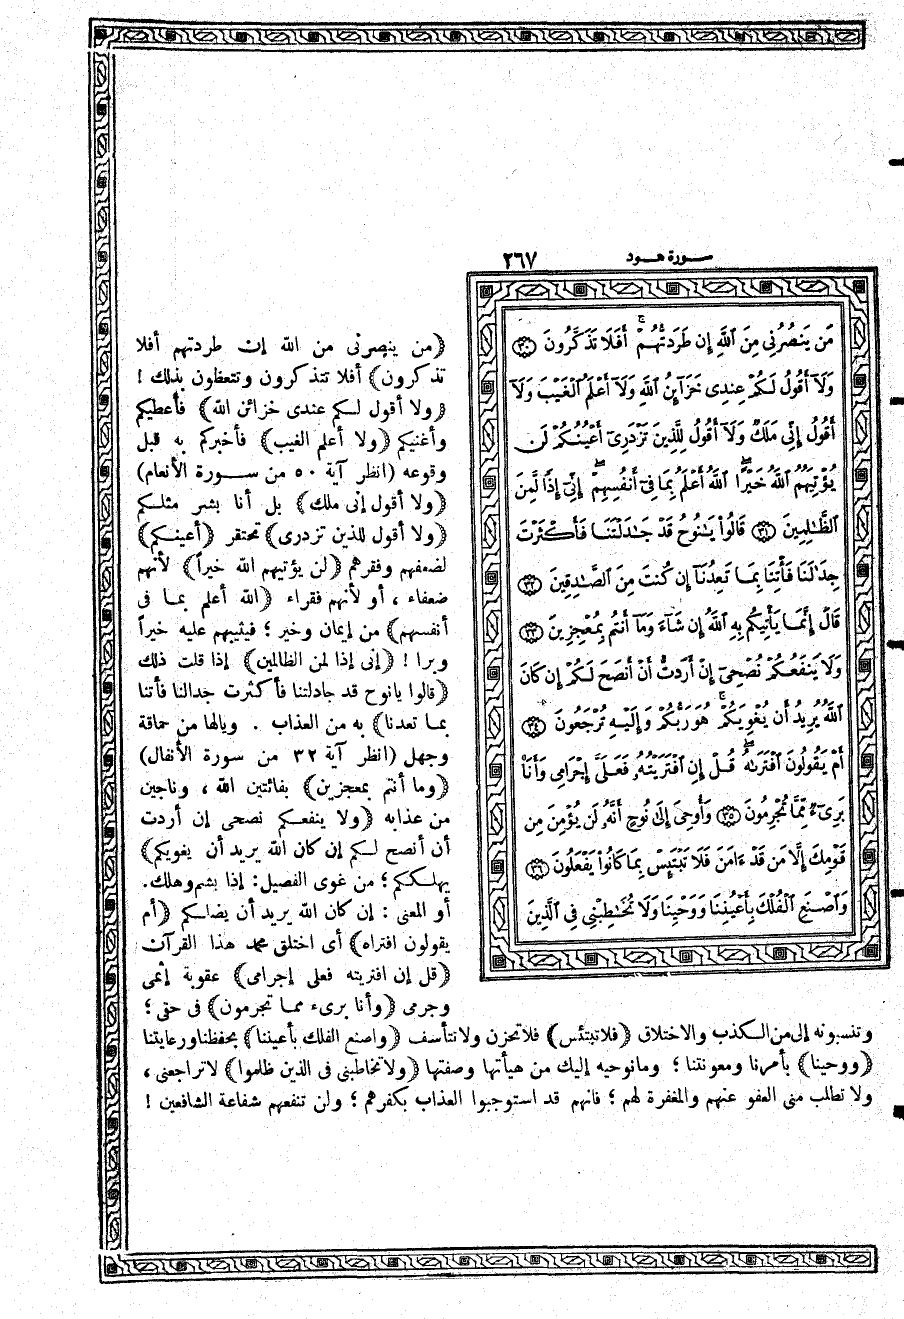 سورة هود ٢٦٧
مَن يَنصُرُنِي مِنَ ٱللَّهِ إِن طَرَدتُّهُمْ ۚ أَفَلَا تَذَكَّرُونَ ٣٠
وَلَآ أَقُولُ لَكُمْ عِندِى خَزَآئِنُ ٱللَّهِ وَلَآ أَعْلَمُ ٱلْغَيْبَ وَلَآ
أَقُولُ إِنِّى مَلَكٌ وَلَآ أَقُولُ لِلَّذِينَ تَزْدَرِىٓ أَعْيُنُكُمْ لَن
يُؤْتِيَهُمُ ٱللَّهُ خَيْرًا ۖ ٱللَّهُ أَعْلَمُ بِمَا فِىٓ أَنفُسِهِمْ ۖ إِنِّىٓ إِذًا لَّمِنَ
ٱلظَّـٰلِمِينَ ٣١ قَالُوا۟ يَـٰنُوحُ قَدْ جَـٰدَلْتَنَا فَأَكْثَرْتَ
جِدَٰلَنَا فَأْتِنَا بِمَا تَعِدُنَآ إِن كُنتَ مِنَ ٱلصَّـٰدِقِينَ ٣٢
قَالَ إِنَّمَا يَأْتِيكُم بِهِ ٱللَّهُ إِن شَآءَ وَمَآ أَنتُم بِمُعْجِزِينَ ٣٣
وَلَا يَنفَعُكُمْ نُصْحِىٓ إِنْ أَرَدتُّ أَنْ أَنصَحَ لَكُمْ إِن كَانَ
ٱللَّهُ يُرِيدُ أَن يُغْوِيَكُمْ ۚ هُوَ رَبُّكُمْ وَإِلَيْهِ تُرْجَعُونَ ٣٤
أَمْ يَقُولُونَ ٱفْتَرَىٰهُ ۖ قُلْ إِنِ ٱفْتَرَيْتُهُۥ فَعَلَىَّ إِجْرَامِى وَأَنَا۠
بَرِىٓءٌ مِّمَّا تُجْرِمُونَ ٣٥ وَأُوحِىَ إِلَىٰ نُوحٍ أَنَّهُۥ لَن يُؤْمِنَ مِن
قَوْمِكَ إِلَّا مَن قَدْ ءَامَنَ فَلَا تَبْتَئِسْ بِمَا كَانُوا۟ يَفْعَلُونَ ٣٦
وَٱصْنَعِ ٱلْفُلْكَ بِأَعْيُنِنَا وَوَحْيِنَا وَلَا تُخَـٰطِبْنِى فِى ٱلَّذِينَ
(من ينصرنى من الله إن طردتهم أفلا
تذكرون) أفلا تتذكرون وتتعظون بذلك !
(ولا أقول لكم عندى خزائن الله) فأعطيكم
وأغنيكم (ولا أعلم الغيب) فأخبركم به قبل
وقوعه (انظر آية ٥٠ من سورة الأنعام)
(ولا أقول إنى ملك) بل أنا بشر مثلكم
(ولا أقول للذين تزدرى) تحتقر (أعينكم)
لضعفهم وفقرهم (لن يؤتيهم الله خيراً) لأنهم
ضعفاء ، أو لأنهم فقراء (الله أعلم بما فى
أنفسهم) من إيمان وخير ؛ فيثيبهم عليه خيراً
وبرا ! (إنى إذا لمن الظالمين) إذا قلت ذلك
(قالوا يانوح قد جادلتنا فأكثرت جدالنا فأتنا
بما تعدنا) به من العذاب . ويالها من حماقة
وجهل (انظر آية ٣٢ من سورة الأنفال)
(وما أنتم بمعجزين) بفائتين الله ، وناجين
من عذابه (ولا ينفعكم نصحى إن أردت
أن أنصح لكم إن كان الله يريد أن يغويكم)
يهلككم ؛ من غوى الفصيل : إذا بشم وهلك .
أو المعنى : إن كان الله يريد أن يضلكم (أم
يقولون افتراه) أى اختلق محمد هذا القرآن
(قل إن افتريته فعلى إجرامى) عقوبة إثمى
وجرمى (وأنا برىء مما تجرمون) فى حقى ؛
وتنسبونه إلى من الكذب والاختلاق (فلا تبتئس) فلا تحزن ولا تتأسف (واصنع الفلك بأعيننا) بحفظنا ورعايتنا
(ووحينا) بأمرنا ومعونتنا ؛ ومانوحيه إليك من هيأتها وصفتها (ولا تخاطبنى فى الذين ظلموا) لا تراجعنى ،
ولا تطلب منى العفو عنهم والمغفرة لهم ؛ فانهم قد استوجبوا العذاب بكفرهم ؛ ولن تنفعهم شفاعة الشافعين !